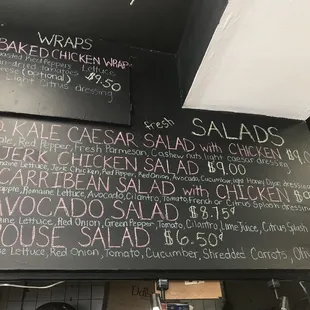 WRAPS
BAKED CHICKEN WRAP
Roasted Red Peppers Lettuce
Tomatoes
(optional) $9.50
Light Citrus dressing
Fresh SALADS
KALE CAESAR SALAD with CHICKEN $9.0
Kale, Red Pepper, Fresh Parmesan, Cashew nuts light caesar dressing
JERK CHICKEN SALAD $9.00
Romaine Lettuce, Jerk Chicken, Red Pepper, Red Onion, Avocado, Cucumber, light Honey Dijon dressing
CARRIBEAN SALAD with CHICKEN $
Romaine Lettuce, Avocado, Cilantro, Tomato, French or Citrus Splash dressing
AVOCADO SALAD $8.75¢
Lettuce, Red Onion, Green Pepper, Tomato, Cilantro, Lime Juice, Citrus Splash
HOUSE SALAD $6.50¢
Lettuce, Red Onion, Tomato, Cucumber, Shredded Carrots, Oliv